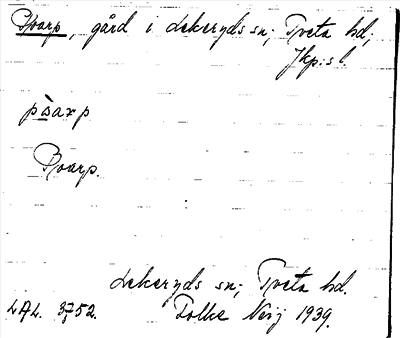 Roarp, gård i Lekeryds sn; Tveta hd;
Jkp:s l.
Roarp.
Lekeryds sn; Tveta hd.
LAL. 3752. Folke 1939.